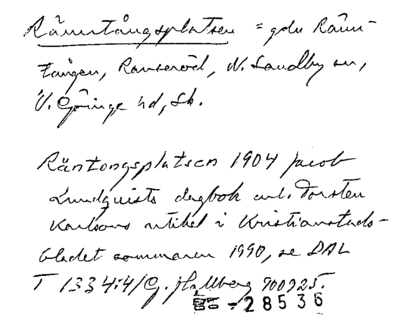 Rämtångsplatsen = gdn Räm-
tången, Ranseröd, N. Sandby sn,
V. Göinge hd, Sk.
Räntongsplatsen 1904 Jacob
Lundquists dagbok enl. Torsten
Karlsons artikel i Kristianstads-
bladet sommaren 1990, se DAL
T 1334:4/G. Hallberg 900925.
- 28536